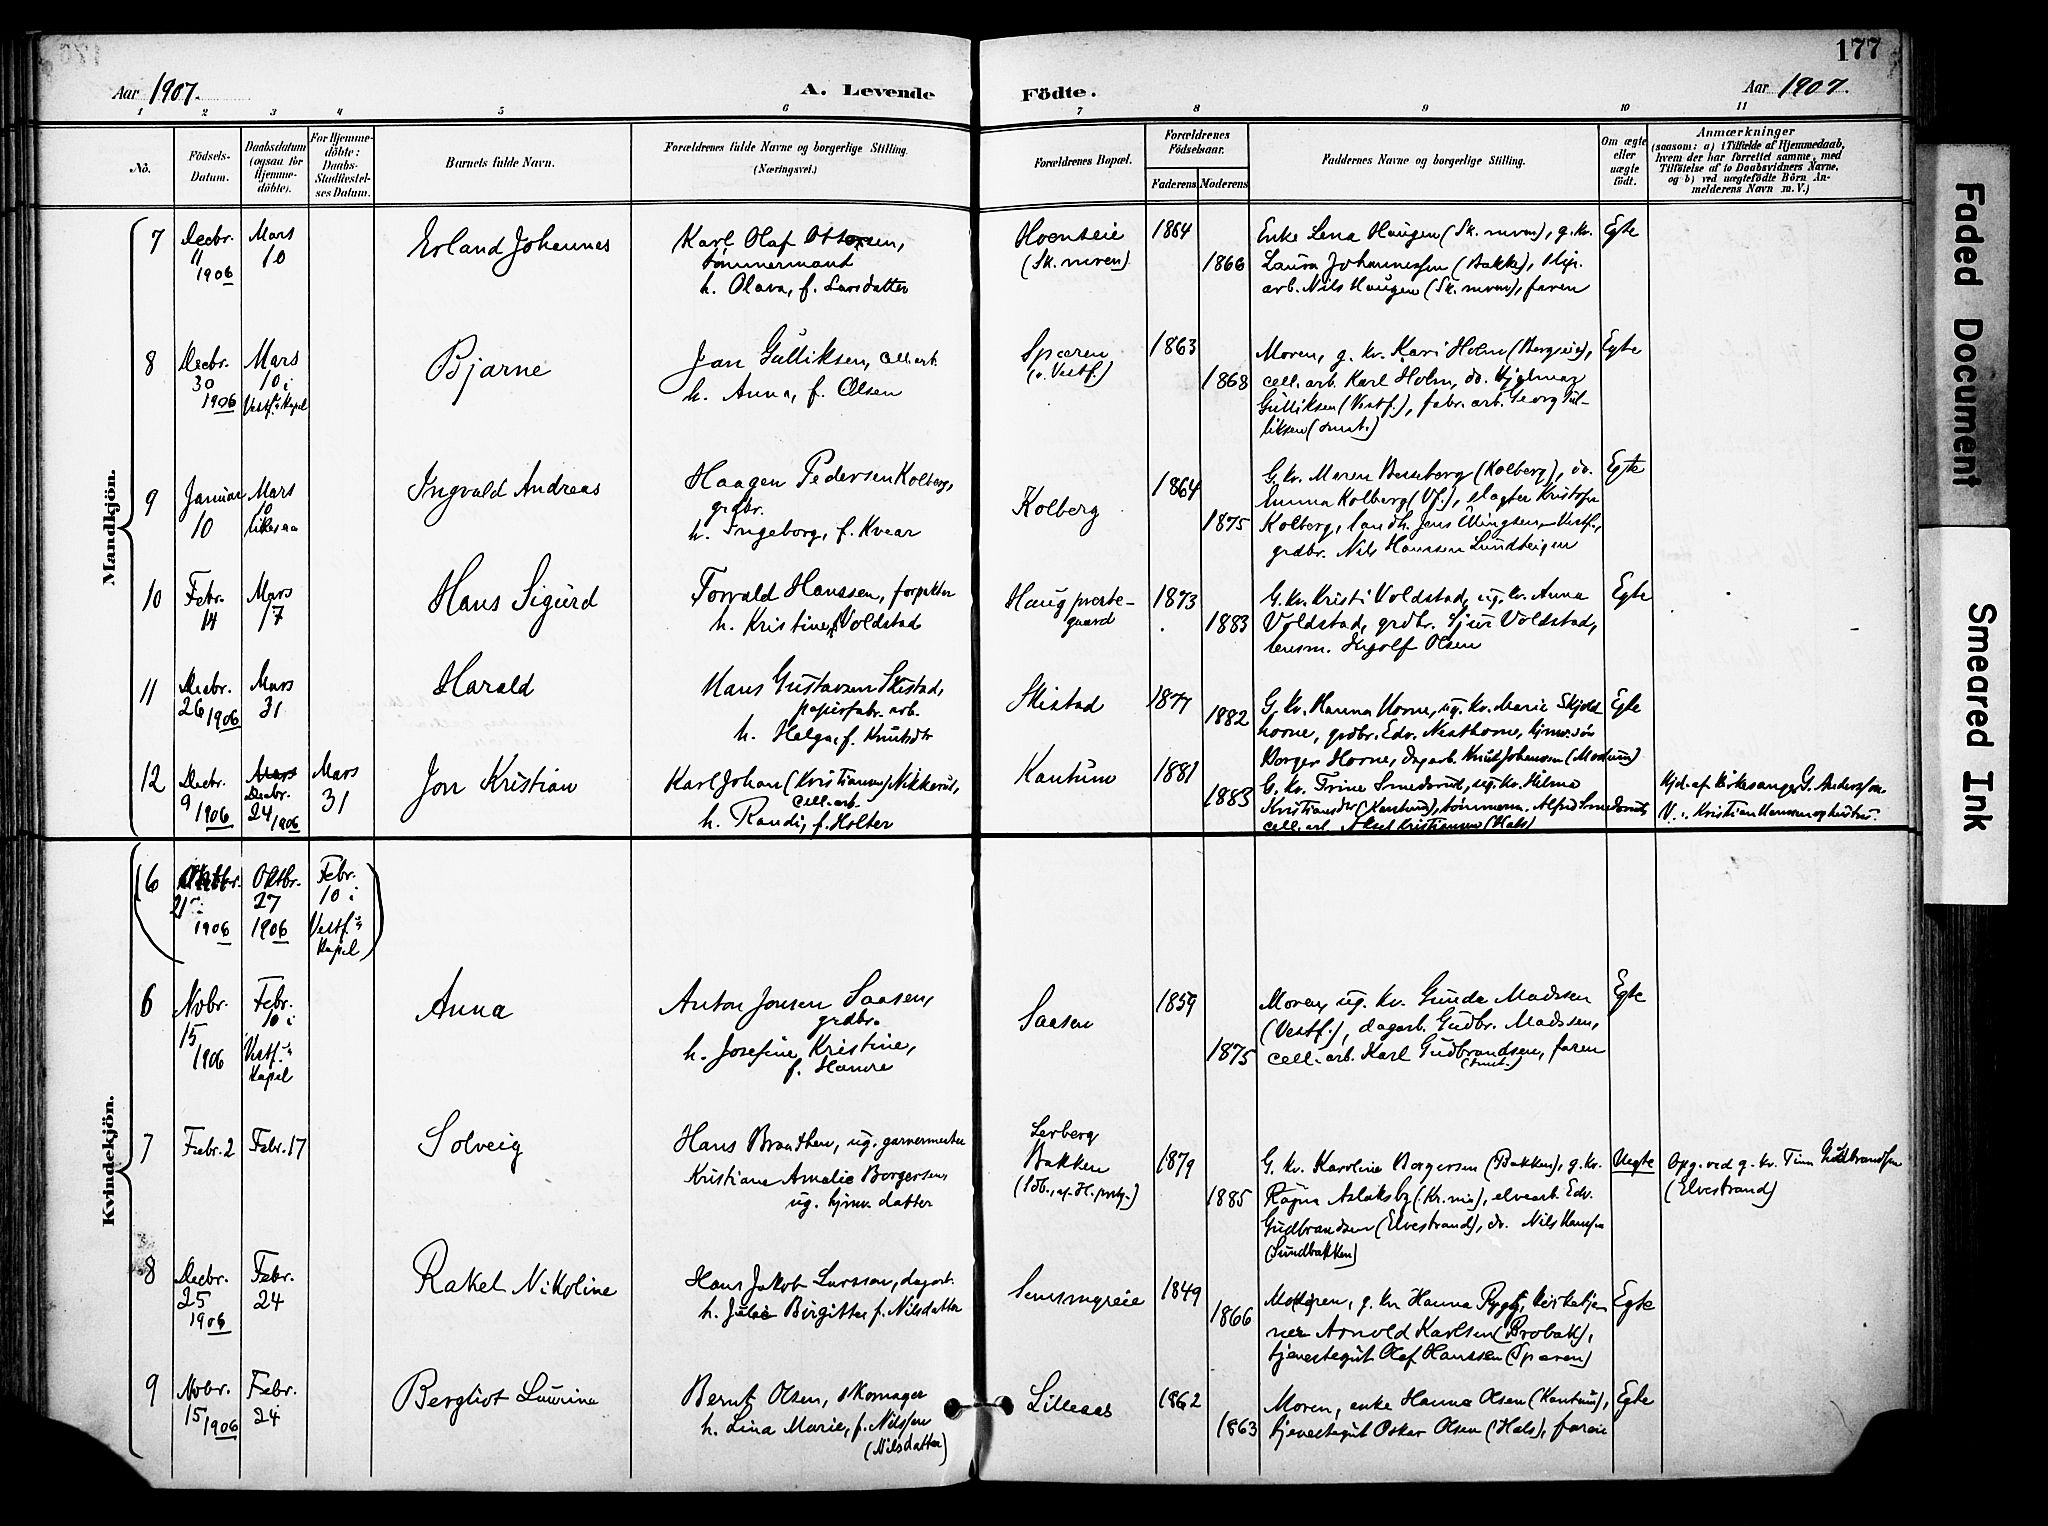 177
Aar 1907.
A. Levende Födte.
Aar 1907.
1 2 3 4 5 6 7 8 9 10 11
No.
Födsels-Datum.
Daabsdatum (ogsaa for Hjemme-döbte).
For Hjemme-döbte: Daabs-Stadfæstel-ses Datum.
Barnets fulde Navn.
Forældrenes fulde Navne og borgerlige Stilling.
(Næringsvei.)
Forældrenes Bopæl.
Forældrenes Födselsaar.
Faderens Moderens
Faddernes Navne og borgerlige Stilling.
Om ægte eller uægte födt.
Anmærkninger
(saasom: a) i Tilfælde af Hjemmedaab,
hvem der har forrettet samme, med
Tilföielse af to Daabsvidners Navne,
og b) ved uægtefödte Börn An-
melderens Navn m. V.)
Mandkjön.
7 Decbr. 11 1906 Mars 10 Erland Johannes
Karl Olaf Ottosen,
tømmermand
h. Olava, f. Larsdatter
Hoenseie
(Sk. mren)
1864 1866
Enke Lena Haugen (Sk. mren), g. kv.
Laura Johannessen (Bakke),
arb. Nils Haugen (Sk. mren), faren
Egte
8 Decbr. 30 1906 Mars 10 i Vestf.s Kapel Bjarne
Jan Gulliksen, cell. arb.
h. Anna, f. Olsen
Spæren
(v. Vestf.)
1863 1868
Moren, g. kv. Kari Holm (Bergseie),
cell. arb. Karl Holm, do. Hjalmar
Gulliksen (Vestf.), fabr. arb. Georg Gul-
liksen (smst.)
Egte
9 Januar 10 Mars 10 likesaa Ingvald Andreas
Haagen Pedersen Kolberg,
grdbr.
h. Ingeborg, f. Kvear
Kolberg
1864 1875
G. kv. Maren Besseberg (Kolberg), do.
Emma Kolberg (Vf.), slagter Kristofer
Kolberg, landh. Jens Ellingsen, Vestf.,
grdbr. Nils Hanssen Sundheigen
Egte
10 Febr. 14 Mars 17 Hans Sigurd
Torvald Hanssen, forpakter
h. Kristine, f. Voldstad
Haug preste-
gaard
1873 1883
G. kv. Kristi Voldstad, ug. kv. Anna
Voldstad, grdbr. Sjur Voldstad,
lensm. Ingolf Olsen
Egte
11 Decbr. 26 1906 Mars 31 Harald
Hans Gustavsen Skistad,
papirfabr. arb.
h. Helga, f. Knutsdtr
Skistad
1877 1882
G. kv. Hanna Horne, ug. kv. Marie Skjold
horne, grdbr. Edv. Nesthorne, hjmv. søn
Borger Horne, dagarb. Knut Johansen (Modum)
Egte
12 Decbr. 9 1906 Mars Decbr. 24 1906 Mars 31 Jon Kristian
Karl Johan (Kristiansen) Nikkerud,
cell. arb.
h. Randi, f. Holter
Kantum
1881 1883
G. kv. Trine Smedsrud, ug. kv. Hilma
Kristiansdtr (Kantum), tømmerm. Alfred Smedsrud,
cell. arb. Aksel Kristiansen (Hals)
Hjd. af kirkesanger G. Anderssen
V.: Kristian Hanssen og hustru.
Kvindekjön.
(6 Oktbr. 21 1906 Oktbr. 27 1906 Febr. 10 i Vestf.s Kapel)
6 Novbr. 15 1906 Febr. 10 i Vestf.s Kapel Anna
Anton Jonsen Saasen,
grdbr.
h. Josefine Kristine,
f. Hamre
Saasen
1859 1875
Moren, ug. kv. Gunda Madssen
(Vestf.), dagarb. Gudbr. Madssen,
cell. arb. Karl Gudbrandsen, faren
(smst.)
Egte
7 Febr. 2 Febr. 17 Solveig
Hans Brathen, ug. garvermester
Kristiane Amalie Borgersen,
ug. hjmv. datter
Lerberg
Bakken
1879 1885
G. kv. Karoline Borgersen (Bakken), g. kv.
Ragna Aslaksby (Kr.nia), elvearb. Edv.
Gudbrandsen (Elvestrand), do. Nils Hansen
(Sundbakken)
Uegte
Opg. ved g. kv. Tina Gudbrandsen
(Elvestrand)
8 Decbr. 25 1906 Febr. 24 Rakel Nikoline
Hans Jakob Larssen, dagarb.
h. Julie Birgitte, f. Nilsdatter
Semsmyreie
1849 1866
Moren, g. kv. Hanna Rygh, kirketje-
ner Arnold Karlsen (Brobak),
tjenestegut Olaf Hanssen (Spæren)
Egte
9 Novbr. 15 1906 Febr. 24 Bergliot Laurine
Bernt Olsen, skomager
h. Lina Marie, f. Nilssen
(Nilsdatter)
Lilleaas
1862 1863
Moren, enke Hanna Olsen (Kantum),
tjenestegut Oskar Olsen (Hals), faren
Egte
Faded Document
Smeared Ink